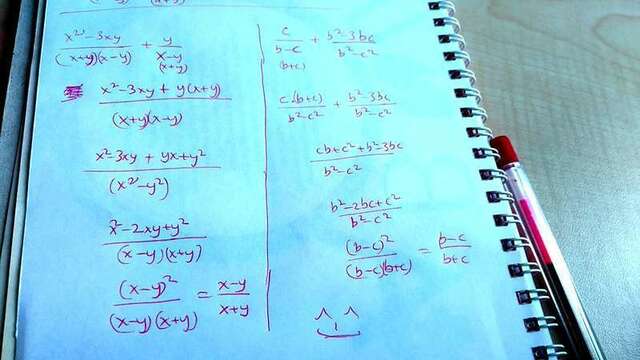 (x²-3xy)/((x+y)(x-y)) + y/(x-y) (x+y)
(x²-3xy + y(x+y))/((x+y)(x-y))
(x²-3xy + yx+y²)/(x²-y²)
(x²-2xy+y²)/((x-y)(x+y))
(x-y)²/((x-y)(x+y)) = (x-y)/(x+y)
c/(b-c) (b+c) + (b²-3bc)/(b²-c²)
c(b+c)/(b²-c²) + (b²-3bc)/(b²-c²)
(cb+c²+b²-3bc)/(b²-c²)
(b²-2bc+c²)/(b²-c²)
(b-c)²/((b-c)(b+c)) = (b-c)/(b+c)